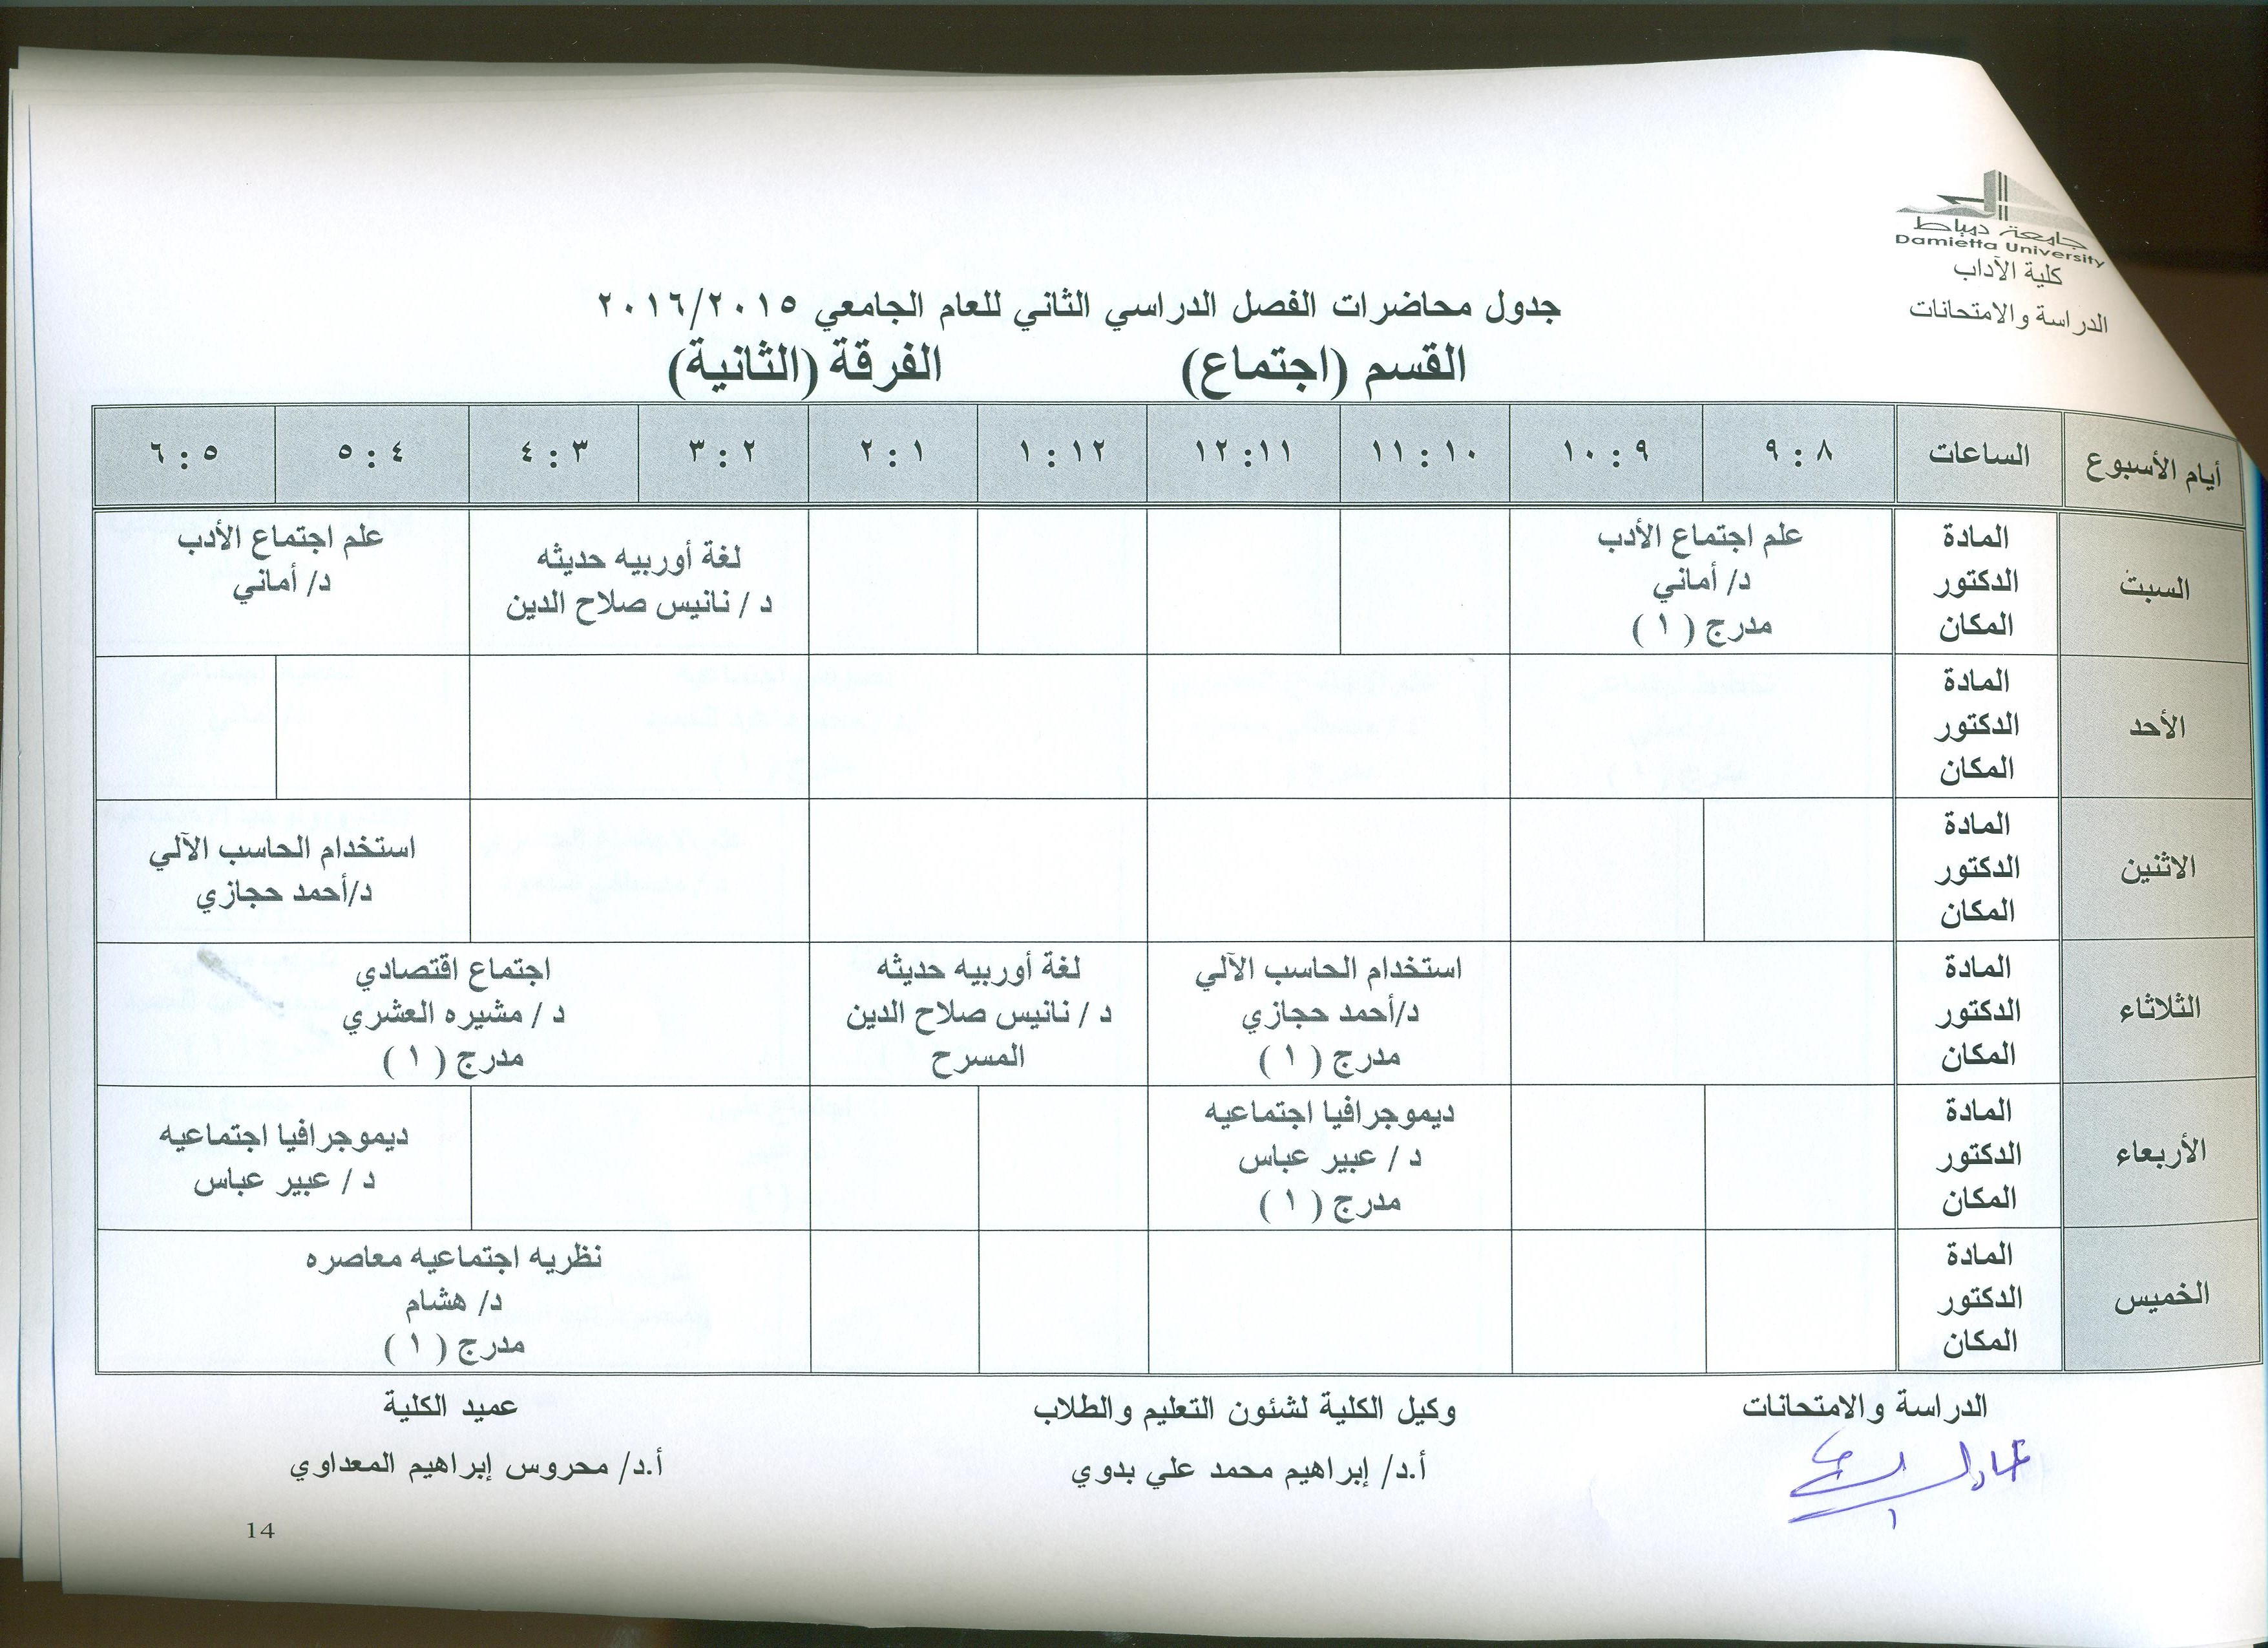 جامعة دمياط
Damietta University
كلية الآداب
الدراسة والامتحانات
جدول محاضرات الفصل الدراسي الثاني للعام الجامعي ٢٠١٦/٢٠١٥
القسم (اجتماع) الفرقة (الثانية)
أيام الأسبوع الساعات ٩ : ٨ ١٠ : ٩ ١١ : ١٠ ١٢ :١١ ١ : ١٢ ٢ : ١ ٣ : ٢ ٤ : ٣ ٥ : ٤ ٦ : ٥
السبت
المادة
الدكتور
المكان
علم اجتماع الأدب
د/ أماني
مدرج ( ١ )
لغة أوربيه حديثه
د / نانيس صلاح الدين
علم اجتماع الأدب
د/ أماني
الأحد
المادة
الدكتور
المكان
الاثنين
المادة
الدكتور
المكان
استخدام الحاسب الآلي
د/أحمد حجازي
الثلاثاء
المادة
الدكتور
المكان
استخدام الحاسب الآلي
د/أحمد حجازي
مدرج ( ١ )
لغة أوربيه حديثه
د / نانيس صلاح الدين
المسرح
اجتماع اقتصادي
د / مشيره العشري
مدرج ( ١ )
الأربعاء
المادة
الدكتور
المكان
ديموجرافيا اجتماعيه
د / عبير عباس
مدرج ( ١ )
ديموجرافيا اجتماعيه
د / عبير عباس
الخميس
المادة
الدكتور
المكان
نظريه اجتماعيه معاصره
د/ هشام
مدرج ( ١ )
الدراسة والامتحانات
وكيل الكلية لشئون التعليم والطلاب
أ.د/ إبراهيم محمد علي بدوي
عميد الكلية
أ.د/ محروس إبراهيم المعداوي
14